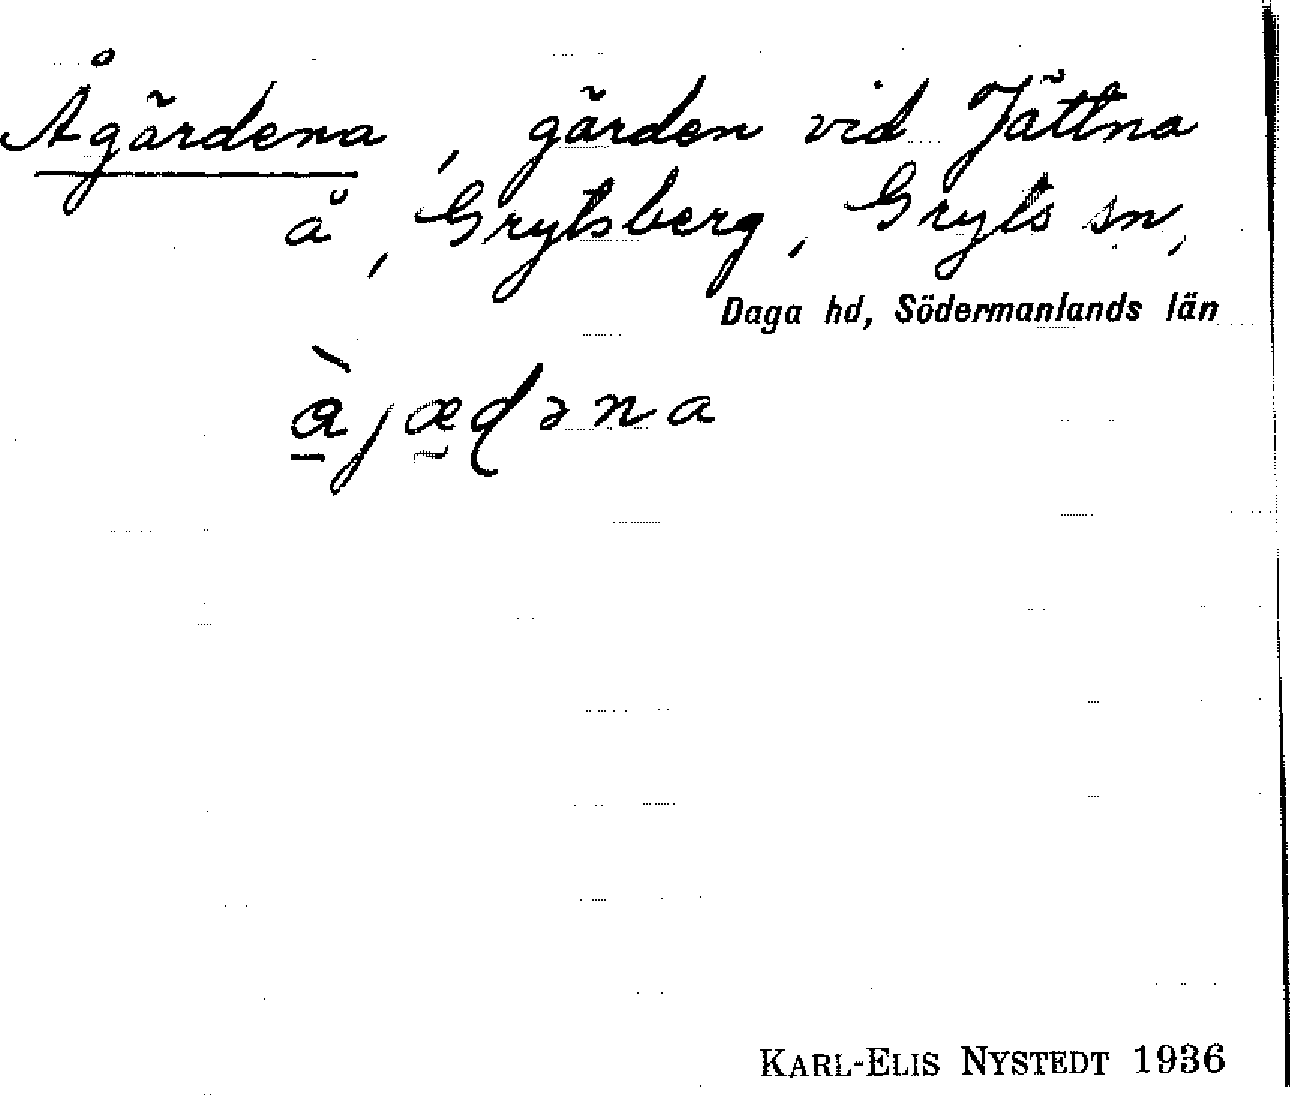 Ågärdena, gärden vid Jättna
å, Grytsberg, Gryts sn,
Daga hd, Södermanlands län
KARL-ELIS NYSTEDT 1936